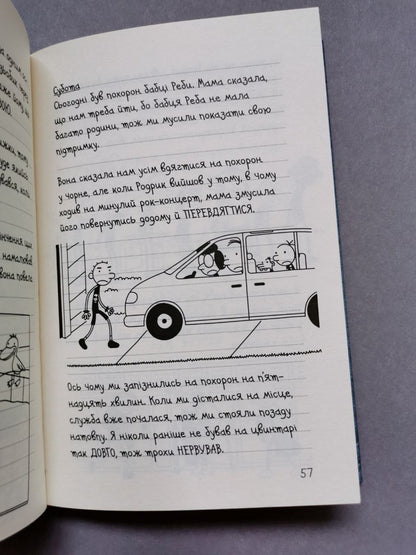 Субота
Сьогодні був похорон бабці Реби. Мама сказала,
що нам треба йти, бо бабця Реба не мала
багато родини, тож ми мусили показати свою
підтримку.
Вона сказала нам усім вдягтися на похорон
у чорне, але коли Родрик вийшов у тому, в чому
ходив на минулий рок-концерт, мама змусила
його повернутись додому й ПЕРЕВДЯГТИСЯ.
Ось чому ми запізнились на похорон на п'ят-
надцять хвилин. Коли ми дісталися на місце,
служба вже почалася, тож ми стояли позаду
натовпу. Я ніколи раніше не бував на цвинтарі
так ДОВГО, тож трохи НЕРВУВАВ.
57